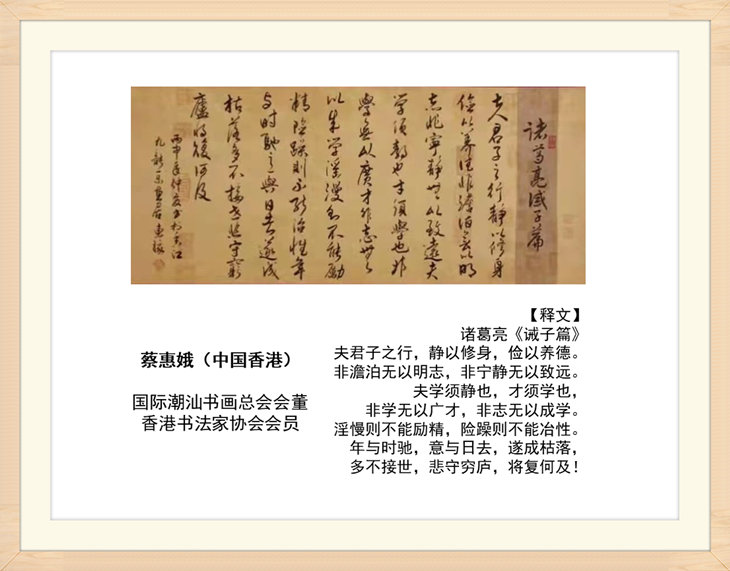 诸葛亮诫子篇
夫君子之行静以修身
俭以养德非澹泊无以明
志非宁静无以致远夫
学须静也才须學也非
學无以廣才非志无
以成学淫漫则不能勵
精险躁则不能治性年
与时馳意與日去遂成
枯落多不接世悲守窮
廬将復何及
丙申年仲夏书於香江
【释文】
诸葛亮《诫子篇》
夫君子之行，静以修身，俭以养德。
非澹泊无以明志，非宁静无以致远。
夫学须静也，才须学也，
非学无以广才，非志无以成学。
淫慢则不能励精，险躁则不能冶性。
年与时驰，意与日去，遂成枯落，
多不接世，悲守穷庐，将复何及！
蔡惠娥（中国香港）
国际潮汕书画总会会董
香港书法家协会会员